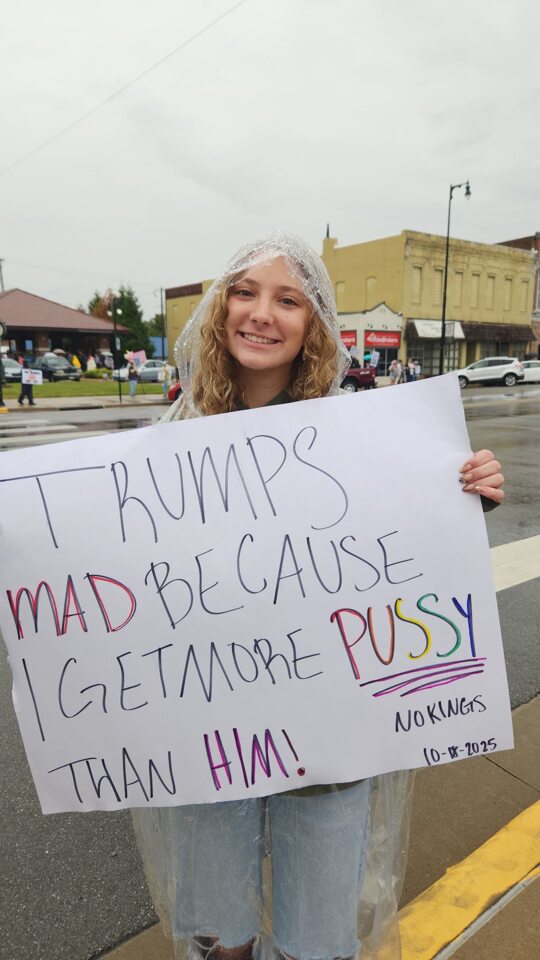 TRUMPS
MAD BECAUSE
I GET MORE PUSSY
THAN HIM!
NO KINGS
10-18-2025